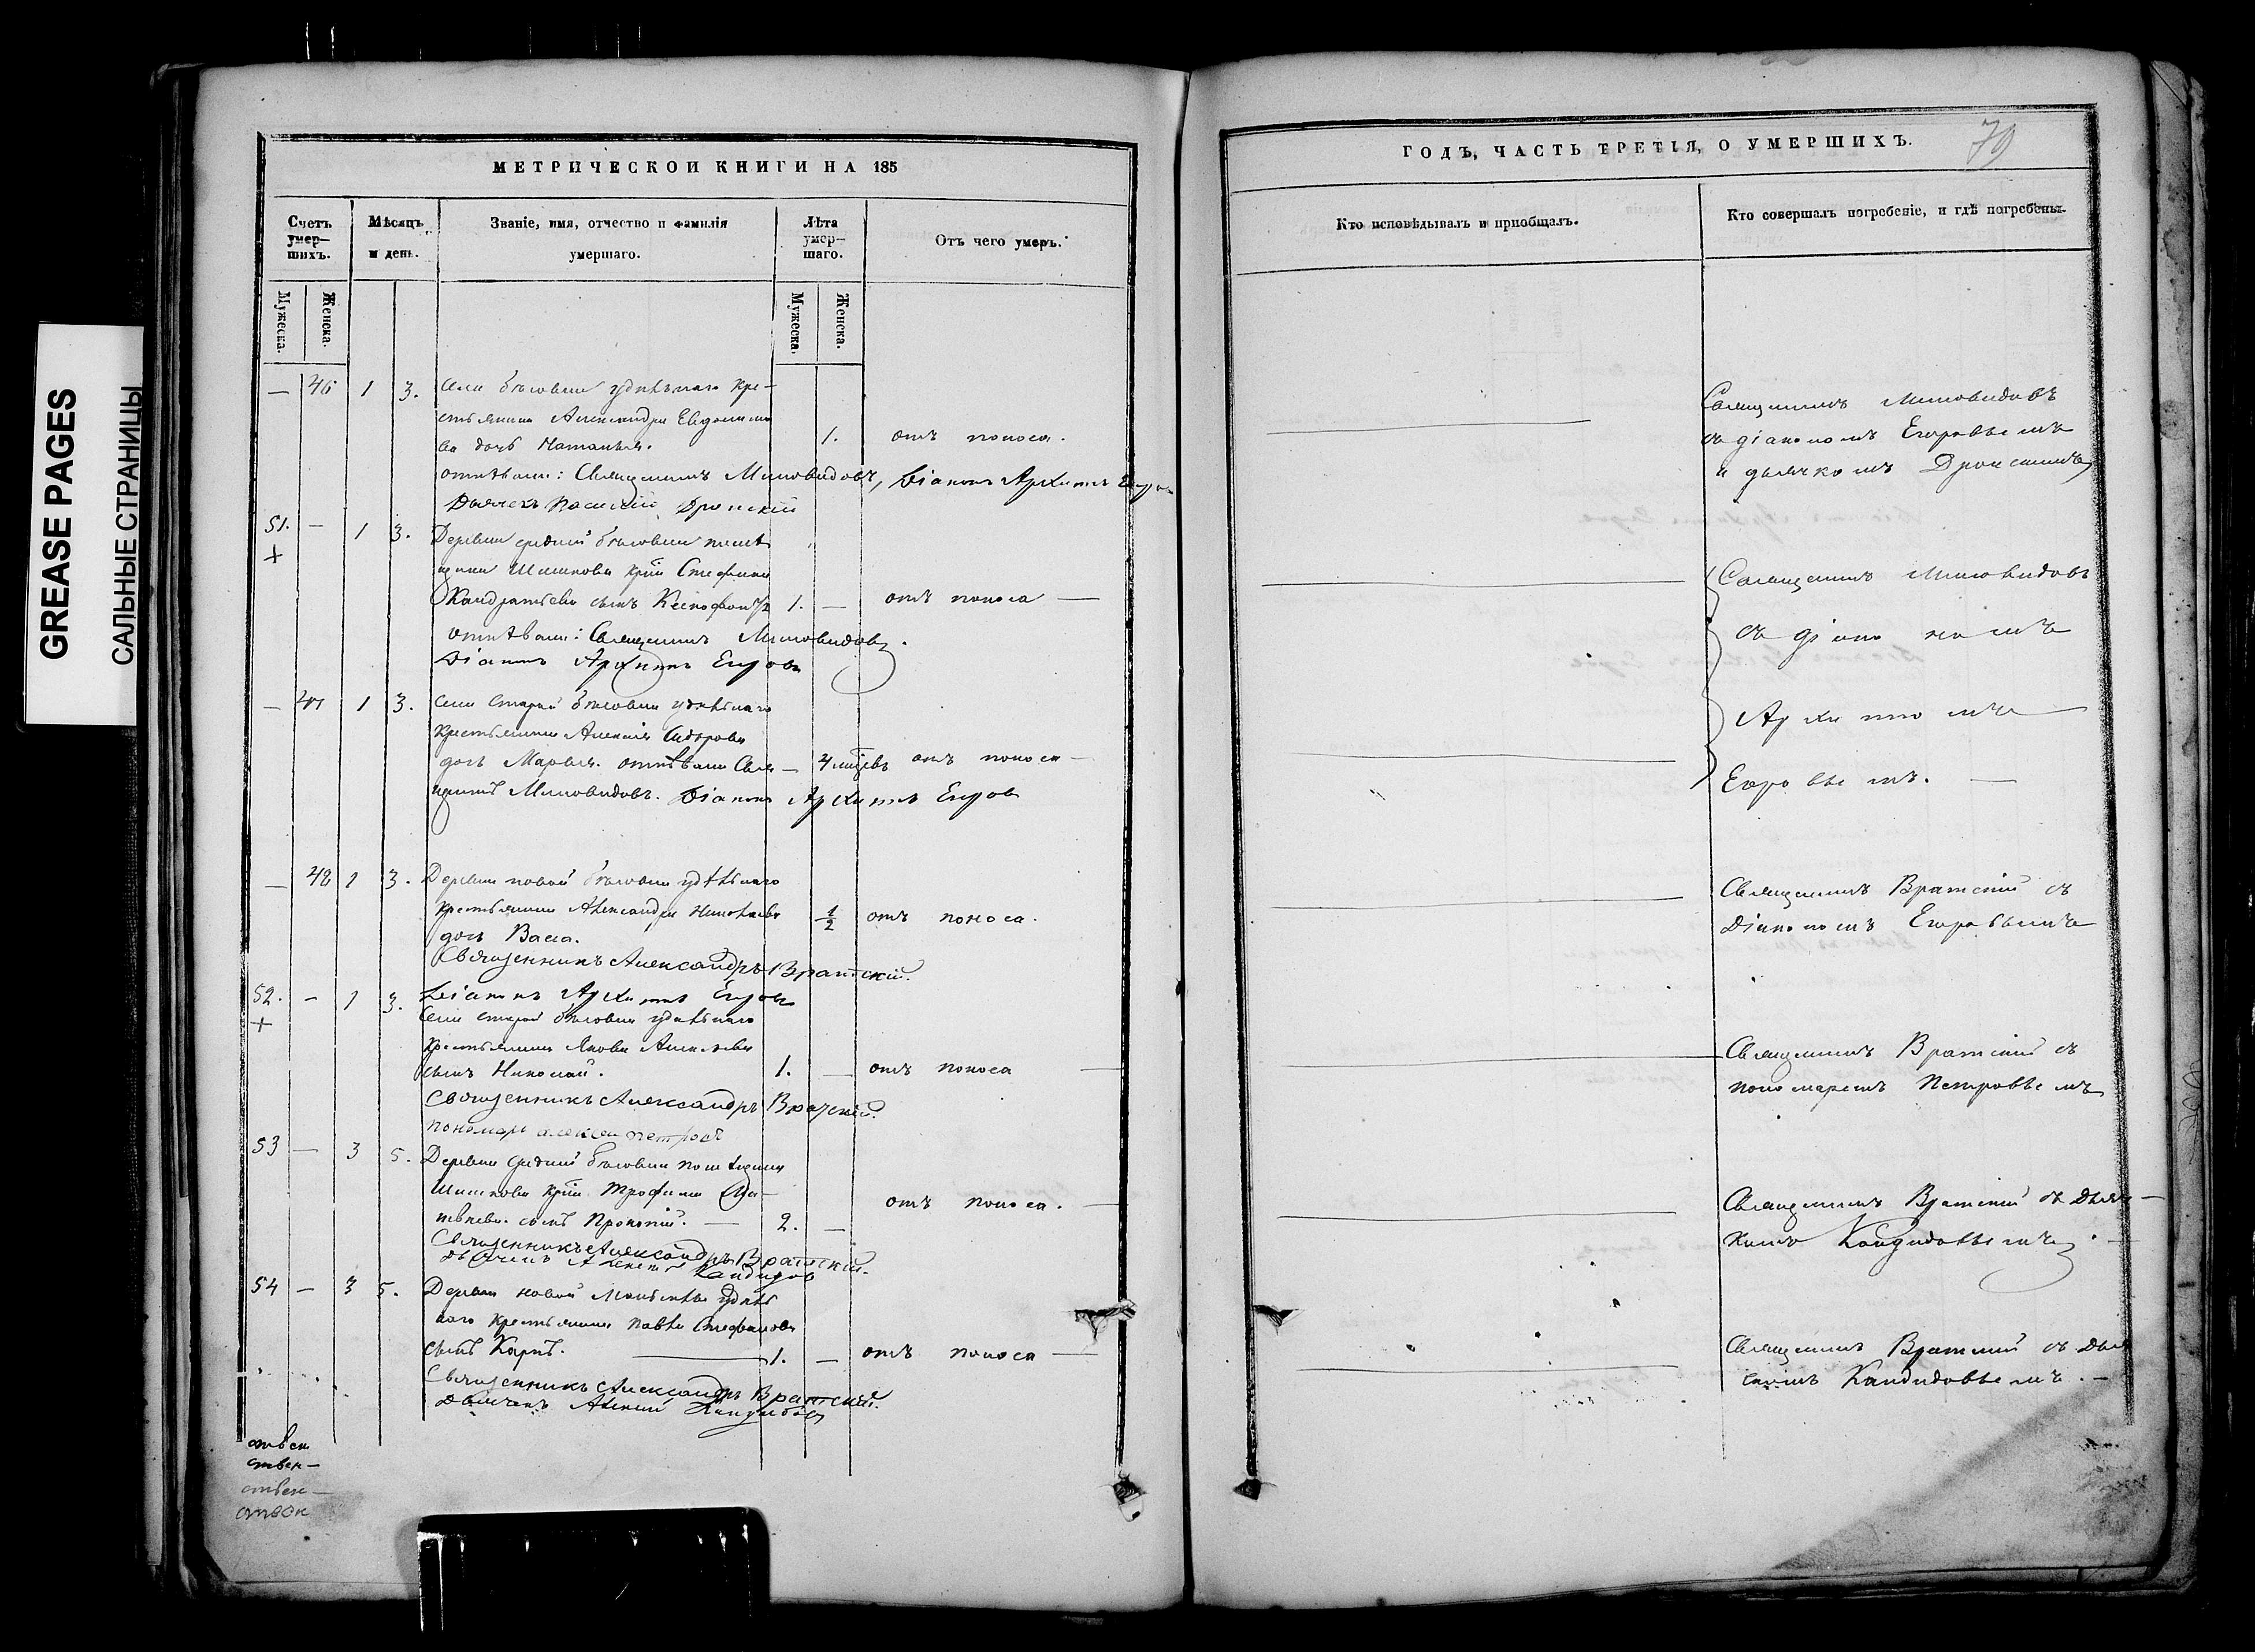 GREASE PAGES
САЛЬНЫЕ СТРАНИЦЫ
МЕТРИЧЕСКОЙ КНИГИ НА 185
Счетъ умер-шихъ.
Мѣсяцъ и день.
Званіе, имя, отчество и фамилія умершаго.
Лѣта умер-шаго.
Отъ чего умеръ.
Мужеска.
Женска.
Мужеска.
Женска.
— 46 1 3. Села удѣльнаго кре-
стьянина Александра Евдокимо
ва дочь Наталья. 1. отъ поноса.
отпѣвали: Священникъ Миловидовъ, Діаконъ Архипъ Егоровъ
Дьячекъ Василій Дронскій
51. — 1 3. Деревни средней помѣ
+
щика Шишкова крᵗⁱ Стефана
Кандратьева сынъ Ксенофонтъ 1. — отъ поноса —
отпѣвали: Священникъ Миловидовъ.
Діаконъ Архипъ Егоровъ
— 47 1 3. Села старой удѣльнаго
крестьянина Алексія Сидорова
дочь Марья. отпѣвали Свя — 4 мцвъ отъ поноса —
щенникъ Миловидовъ. Діаконъ Архипъ Егоровъ
— 48 1 3. Деревни новой удѣльнаго
крестьянина Александра Николаева 1/2 отъ поноса.
дочь Васса.
Священникъ Александръ Вратскій.
52. — 1 3. Діаконъ Архипъ Егоровъ
+
Села старой удѣльнаго
крестьянина Якова Алексѣева
сынъ Николай. 1. — отъ поноса —
Священникъ Александръ Вратскій.
пономарь Алексей Петровъ
53 — 3 5. Деревни средней помѣщика
Шишкова крᵗⁱ Трофима Ма-
твѣева сынъ Прокопій. — 2. — отъ поноса. —
Священникъ Александръ Вратскій.
Дьячекъ Алексій Кандидов
54 — 3 5. Деревни новой удѣль
наго крестьянина Павла Стефанова
сынъ Карпъ. 1. — отъ поноса —
Священникъ Александръ Вратскій.
Дьячекъ Алексій Кандидовъ
ГОДЪ, ЧАСТЬ ТРЕТІЯ, О УМЕРШИХЪ.
79
Кто исповѣдывалъ и пріобщалъ.
Кто совершалъ погребеніе, и гдѣ погребены.
Священникъ Миловидовъ
съ діакономъ Егоровымъ
и дьячкомъ Дронскимъ
Священникъ Миловидовъ
съ діакономъ
Архипомъ
Егоровымъ. —
Священникъ Вратскій съ
Діакономъ Егоровымъ
Священникъ Вратскій съ
пономаремъ Петровымъ
Священникъ Вратскій съ Дьяч—
комъ Кандидовымъ. —
Священникъ Вратскій съ Дья
Кандидовымъ. —